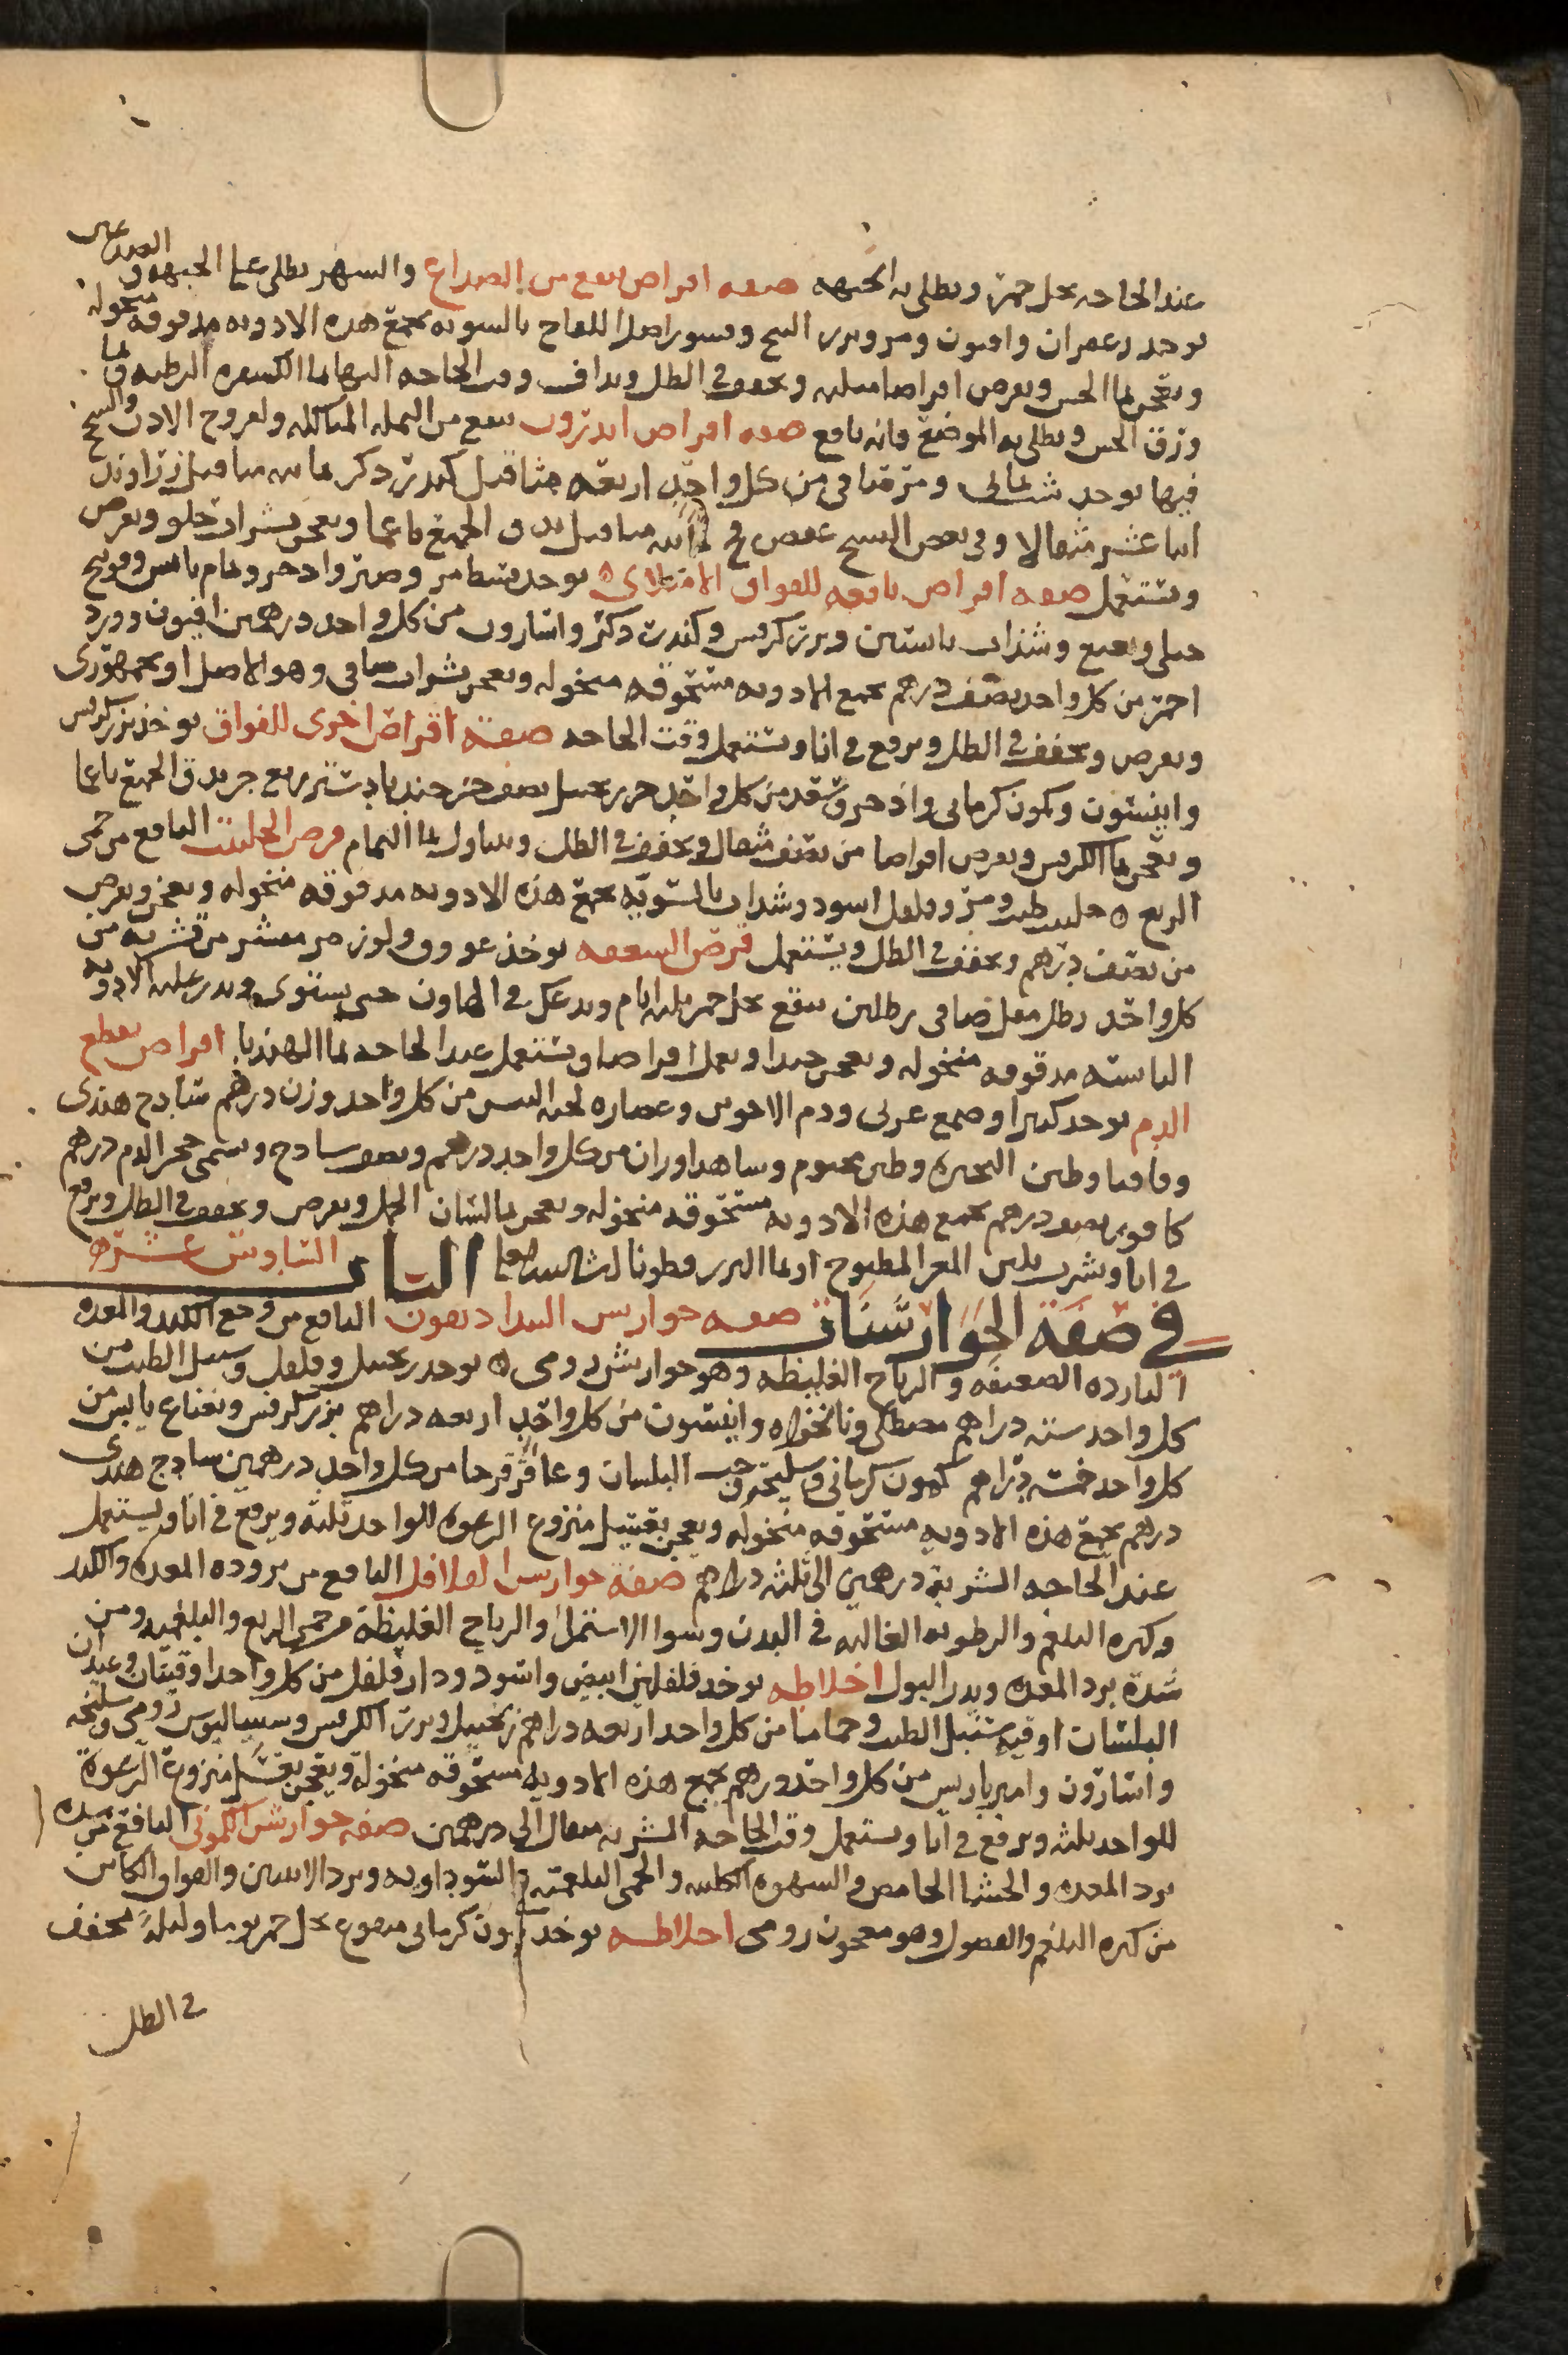 عند الحاجه بخل خمر ويطلى به الجبهه صفه اقراص تنفع من الصداع والسهر يطلى على الجبهه والصدغين
يوخذ زعفران وافيون ومر وبزر البنج وقشور اصل اللفاح بالسويه تجمع هذه الادويه مدقوقه منخوله
وتعجن بما الخس ويقرص اقراصا مثلثه ويجفف في الظل ويداف وقت الحاجه اليها بما الكسفره الرطبه وبما
ورق الخس ويطلى به الموضع فانه نافع صفه اقراص اندرون تنفع من النمله المتاكله ولقروح الاذن والسحج
فيها يوخذ شب يمانى ومر صافى من كل واحد اربعه مثاقيل كندر ذكر ثمانيه مثاقيل زراوند
اثنا عشر مثقالا وفي بعض النسخ عفص فج ثمانيه مثاقيل يدق الجميع ناعما ويعجن بشراب حلو ويقرص
ويستعمل صفه اقراص نافعه للفواق الامتلاى يوخذ قسط مر وصبر واذخر ونمام يابس وفودنج
جبلى ونعنع وشذاب يابسين وبزر كرفس وكندر ذكر واسارون من كل واحد درهمين افيون وورد
احمر من كل واحد نصف درهم تجمع الادويه مسحوقه منخوله ويعجن بشراب صافى وهو الاصل او بجمهورى
ويقرص ويجفف في الظل ويرفع في انا ويستعمل وقت الحاجه صفة اقراص اخرى للفواق يوخذ بزر كرفس
وانيسون وكمون كرمانى واذخر وسعد من كل واحد جزء زنجبيل نصف جزء جندبادستر ربع جزء يدق الجميع ناعما
ويعجن بما الكرفس ويقرص اقراصا من نصف مثقال ويجفف في الظل ويتناول بما النمام قرص الحلتيت النافع من حمى
الربع حلتيت طيب ومر وفلفل اسود وشداب بالسويه تجمع هذه الادويه مدقوقه منخوله ويعجن ويقرص
من نصف درهم ويجفف في الظل ويستعمل قرص السعفه يوخذ عروق ولوز مر مقشر من قشريه من
كل واحد رطل مقل صافى رطلين ينقع بخل خمر ثلثه ايام ويدعك في الهاون حتى يستوى ويذر عليه الادويه
اليابسه مدقوقه منخوله ويعجن جيدا ويعمل اقراصا ويستعمل عند الحاجه بما الهندبا اقراص تقطع
الدم يوخذ كثيرا وصمغ عربى ودم الاخوين وعصاره لحيه التيس من كل واحد وزن درهم شادنج هندى
وقاقيا وطين البحيره وطين مختوم وساهداوران من كل واحد درهم ونصف سادج ويسمى حجر الدم درهم
كافور نصف درهم تجمع هذه الادويه مسحوقه منخوله ويعجن بما لسان الحمل ويقرص ويجفف في الظل ويرفع
في انا ويشرب بلبن المعز المطبوخ او بما البزر قطونا الباب السادس عشر
في صفة الجوارشنات صفه جوارشن البداديقون النافع من وجع الكبد والمعده
البارده الضعيفه والرياح الغليظه وهو جوارشن رومى يوخذ زنجبيل وفلفل وسنبل الطيب من
كل واحد سته دراهم مصطكى ونانخواه وانيسون من كل واحد اربعه دراهم بزر كرفس ونعناع يابس من
كل واحد خمسه دراهم كمون كرمانى وسليخه وحب البلسان وعاقرقرحا من كل واحد درهمين سادج هندى
درهم تجمع هذه الادويه مسحوقه منخوله ويعجن بعسل منزوع الرغوه للواحد ثلثه ويرفع في انا ويستعمل
عند الحاجه الشربه درهمين الى ثلثه دراهم صفة جوارشن الفلافل النافع من بروده المعده والكبد
وكثره البلغم والرطوبه الغالبه في البدن وسوا الاستمرا والرياح الغليظة وحمى الربع والبلغميه ومن
شدة برد المعده ويدر البول اخلاطه يوخذ فلفلين ابيض واسود ودارفلفل من كل واحد اوقيتان وعيدان
البلسان اوقيه سنبل الطيب وحماما من كل واحد اربعه دراهم زنجبيل وبزر الكرفس وسيساليوس رومى وسليخه
واسارون وامبرباريس من كل واحد درهم تجمع هذه الادويه مسحوقه منخوله ويعجن بعسل منزوع الرغوة
للواحد ثلثه ويرفع في انا ويستعمل وقت الحاجه الشربه مثقال الى درهمين صفه جوارشن الكمونى النافع من شده
برد المعده والجشا الحامض والشهوه الكلبيه والحمى البلغميه والسوداويه وبرد الانثيين والفواق الكاين
من كثره البلغم والفضول وهو معجون رومى اخلاطه يوخذ كمون كرمانى منقوع بخل خمر يوما وليلة مجفف
في الظل